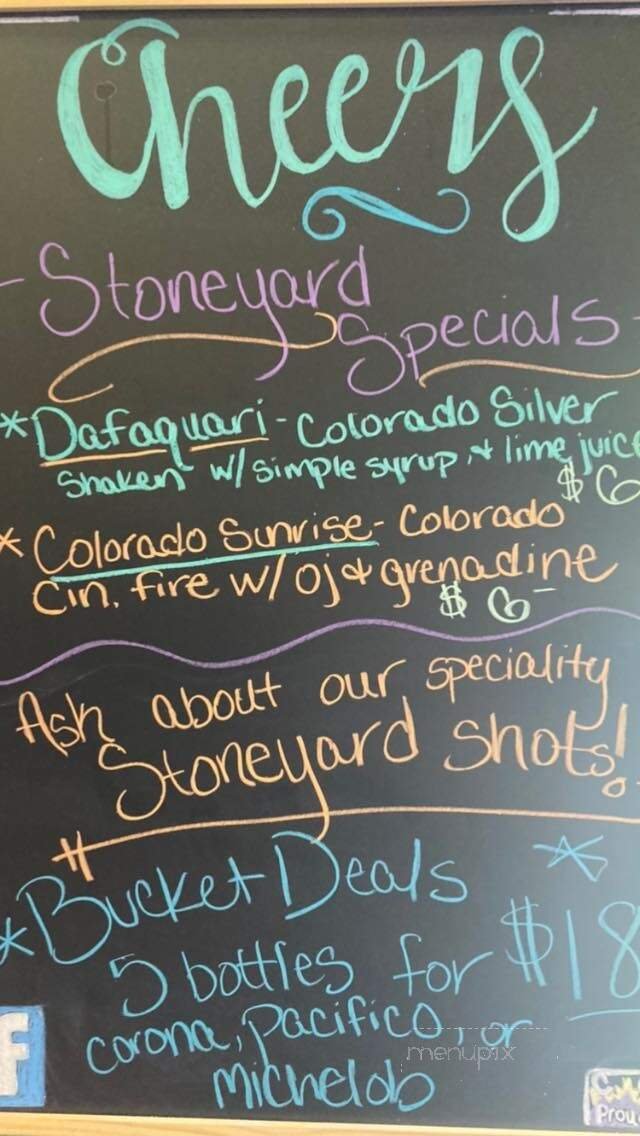 Cheers
-Stoneyard
Specials-
*Dafaquari - Colorado Silver
Shaken w/simple syrup, + lime juice
$6
* Colorado Sunrise - Colorado
Cin. fire w/ oj + grenadine
$6-
Ask about our speciality
Stoneyard shots!
*Bucket Deals *
5 bottles for $18
corona, pacifico, or
michelob
menupix
f
Prou